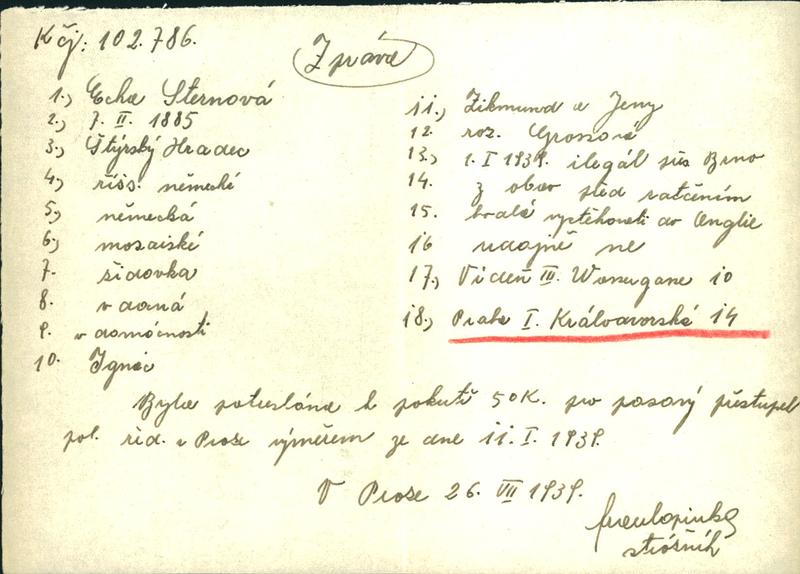 K čj: 102.786.
Zpráva
1.) Echa Sternová
2.) 7. II. 1885
3.) Štýrský Hradec
4.) říšs. německé
5.) německá
6.) mosaiské
7. židovka
8. vdaná
9. v domácnosti
10. Ignác
11.) Zikmund a Jeny
12. roz. Grossová
13.) 1. I 1939. ilegál přes Brno
14. z obav před zatčením
15. hodlá vystěhovati do Anglie
16 udajně ne
17.) Vídeň III. 10
18.) Praha I. Královorská 14
Byla potrestána k pokutě 50K. pro pasový přestupek
pol. řed. v Praze výměrem ze dne 11. I. 1939.
V Praze 26. VII 1939.
strážník